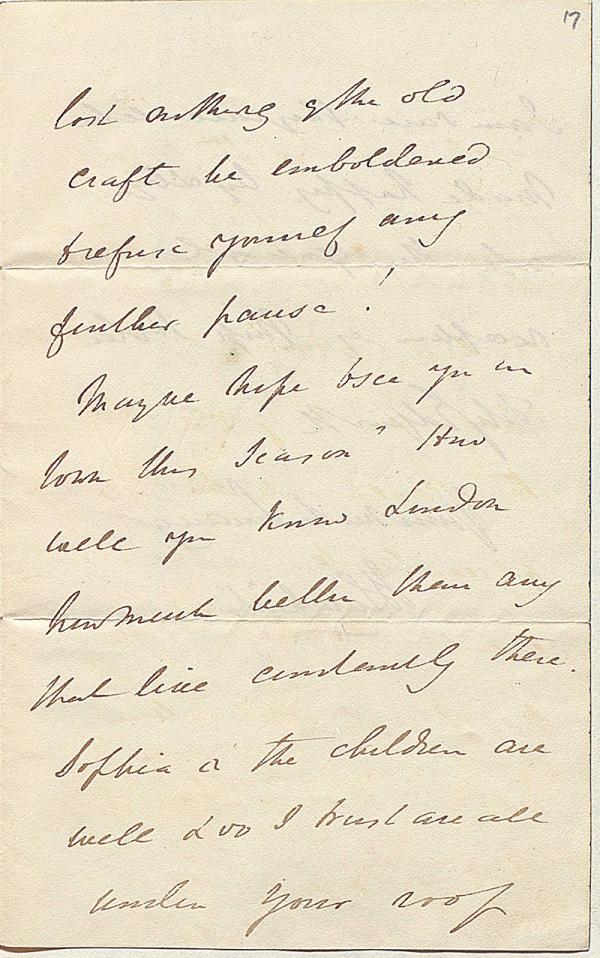 17
lost nothing of the old
craft be emboldened
to refuse yourself any
further pause!
May we hope to see you in
town this season? How
well you know London
how much better than any
that live constantly there.
Sophia & the children are
well & so I trust are all
under your roof